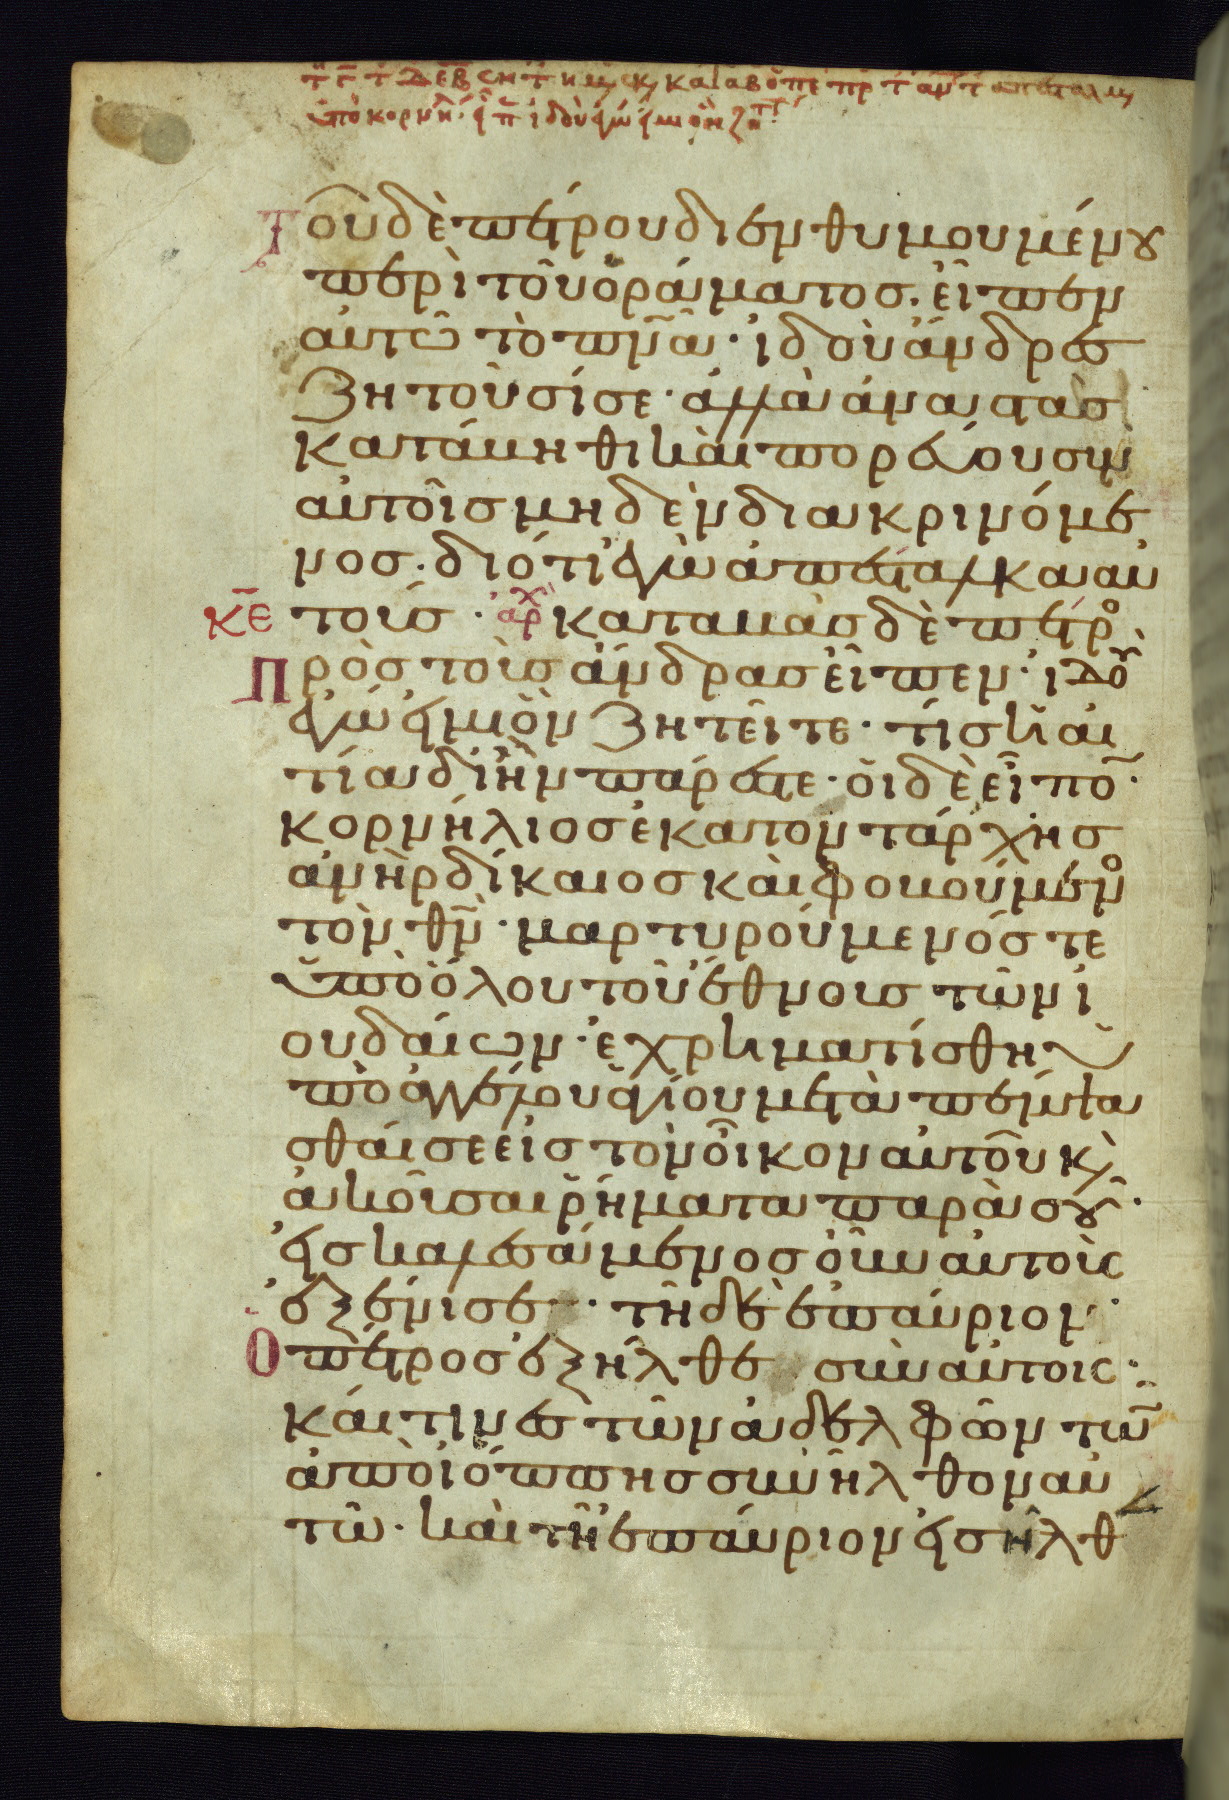 Τοῦ δὲ πέτρου διενθυμουμένου
περὶ τοῦ ὁράματος. εἶπεν
αὐτῶ τὸ πν̅α̅· ἰδοὺ ἄνδρες
ζητοῦσί σε· ἀλλὰ ἀναστὰς
κατάβηθι καὶ πορεύου σὺν
αὐτοῖς μηδὲν διακρινόμε
νος. διότι ἐγὼ ἀπέσταλκα αὐ
κ̅ε̅ τούς · ἀρχ καταβὰς δὲ πέτρο
Πρὸς τοὺς ἄνδρας εἶπεν· ἰδοὺ
ἐγώ εἰμι ὃν ζητεῖτε· τίς ἡ αἰ
τία δι ἣν πάρεστε· οἱ δὲ εἶπο̅·
κορνήλιος ἑκατοντάρχης
ἀνὴρ δίκαιος καὶ φοβούμενο
τὸν θν̅· μαρτυρούμενός τε
ὑπὸ ὅλου τοῦ ἔθνους τῶν ἰ
ουδαίων· ἐχρηματίσθη ὑ
πὸ ἀγγέλου ἁγίου μεταπέμψα
σθαί σε εἰς τὸν οἶκον αὐτοῦ κὶ
ἀκοῦσαι ῥήματα παρὰ σοῦ·
εἰσκαλεσάμενος οὖν αὐτοὺς
ἐξένισε · τῆ δὲ ἐπαύριον·
Ὁ πέτρος ἐξῆλθε σὺν αὐτοῖς·
καί τινες τῶν ἀδελφῶν τῶ̅
ἀπὸ ἰόππης συνῆλθον αὐ
τῶ· καὶ τῆ ἐπαύριον εἰσῆλθ